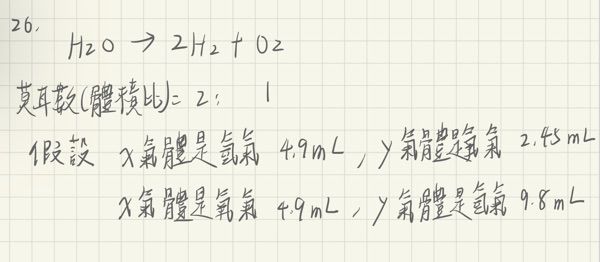 26.
H2O → 2H2 + O2
莫耳數(體積比)= 2: 1
假設 x氣體是氫氣 4.9mL, y氣體是氧氣 2.45mL
x氣體是氧氣 4.9mL, y氣體是氫氣 9.8mL